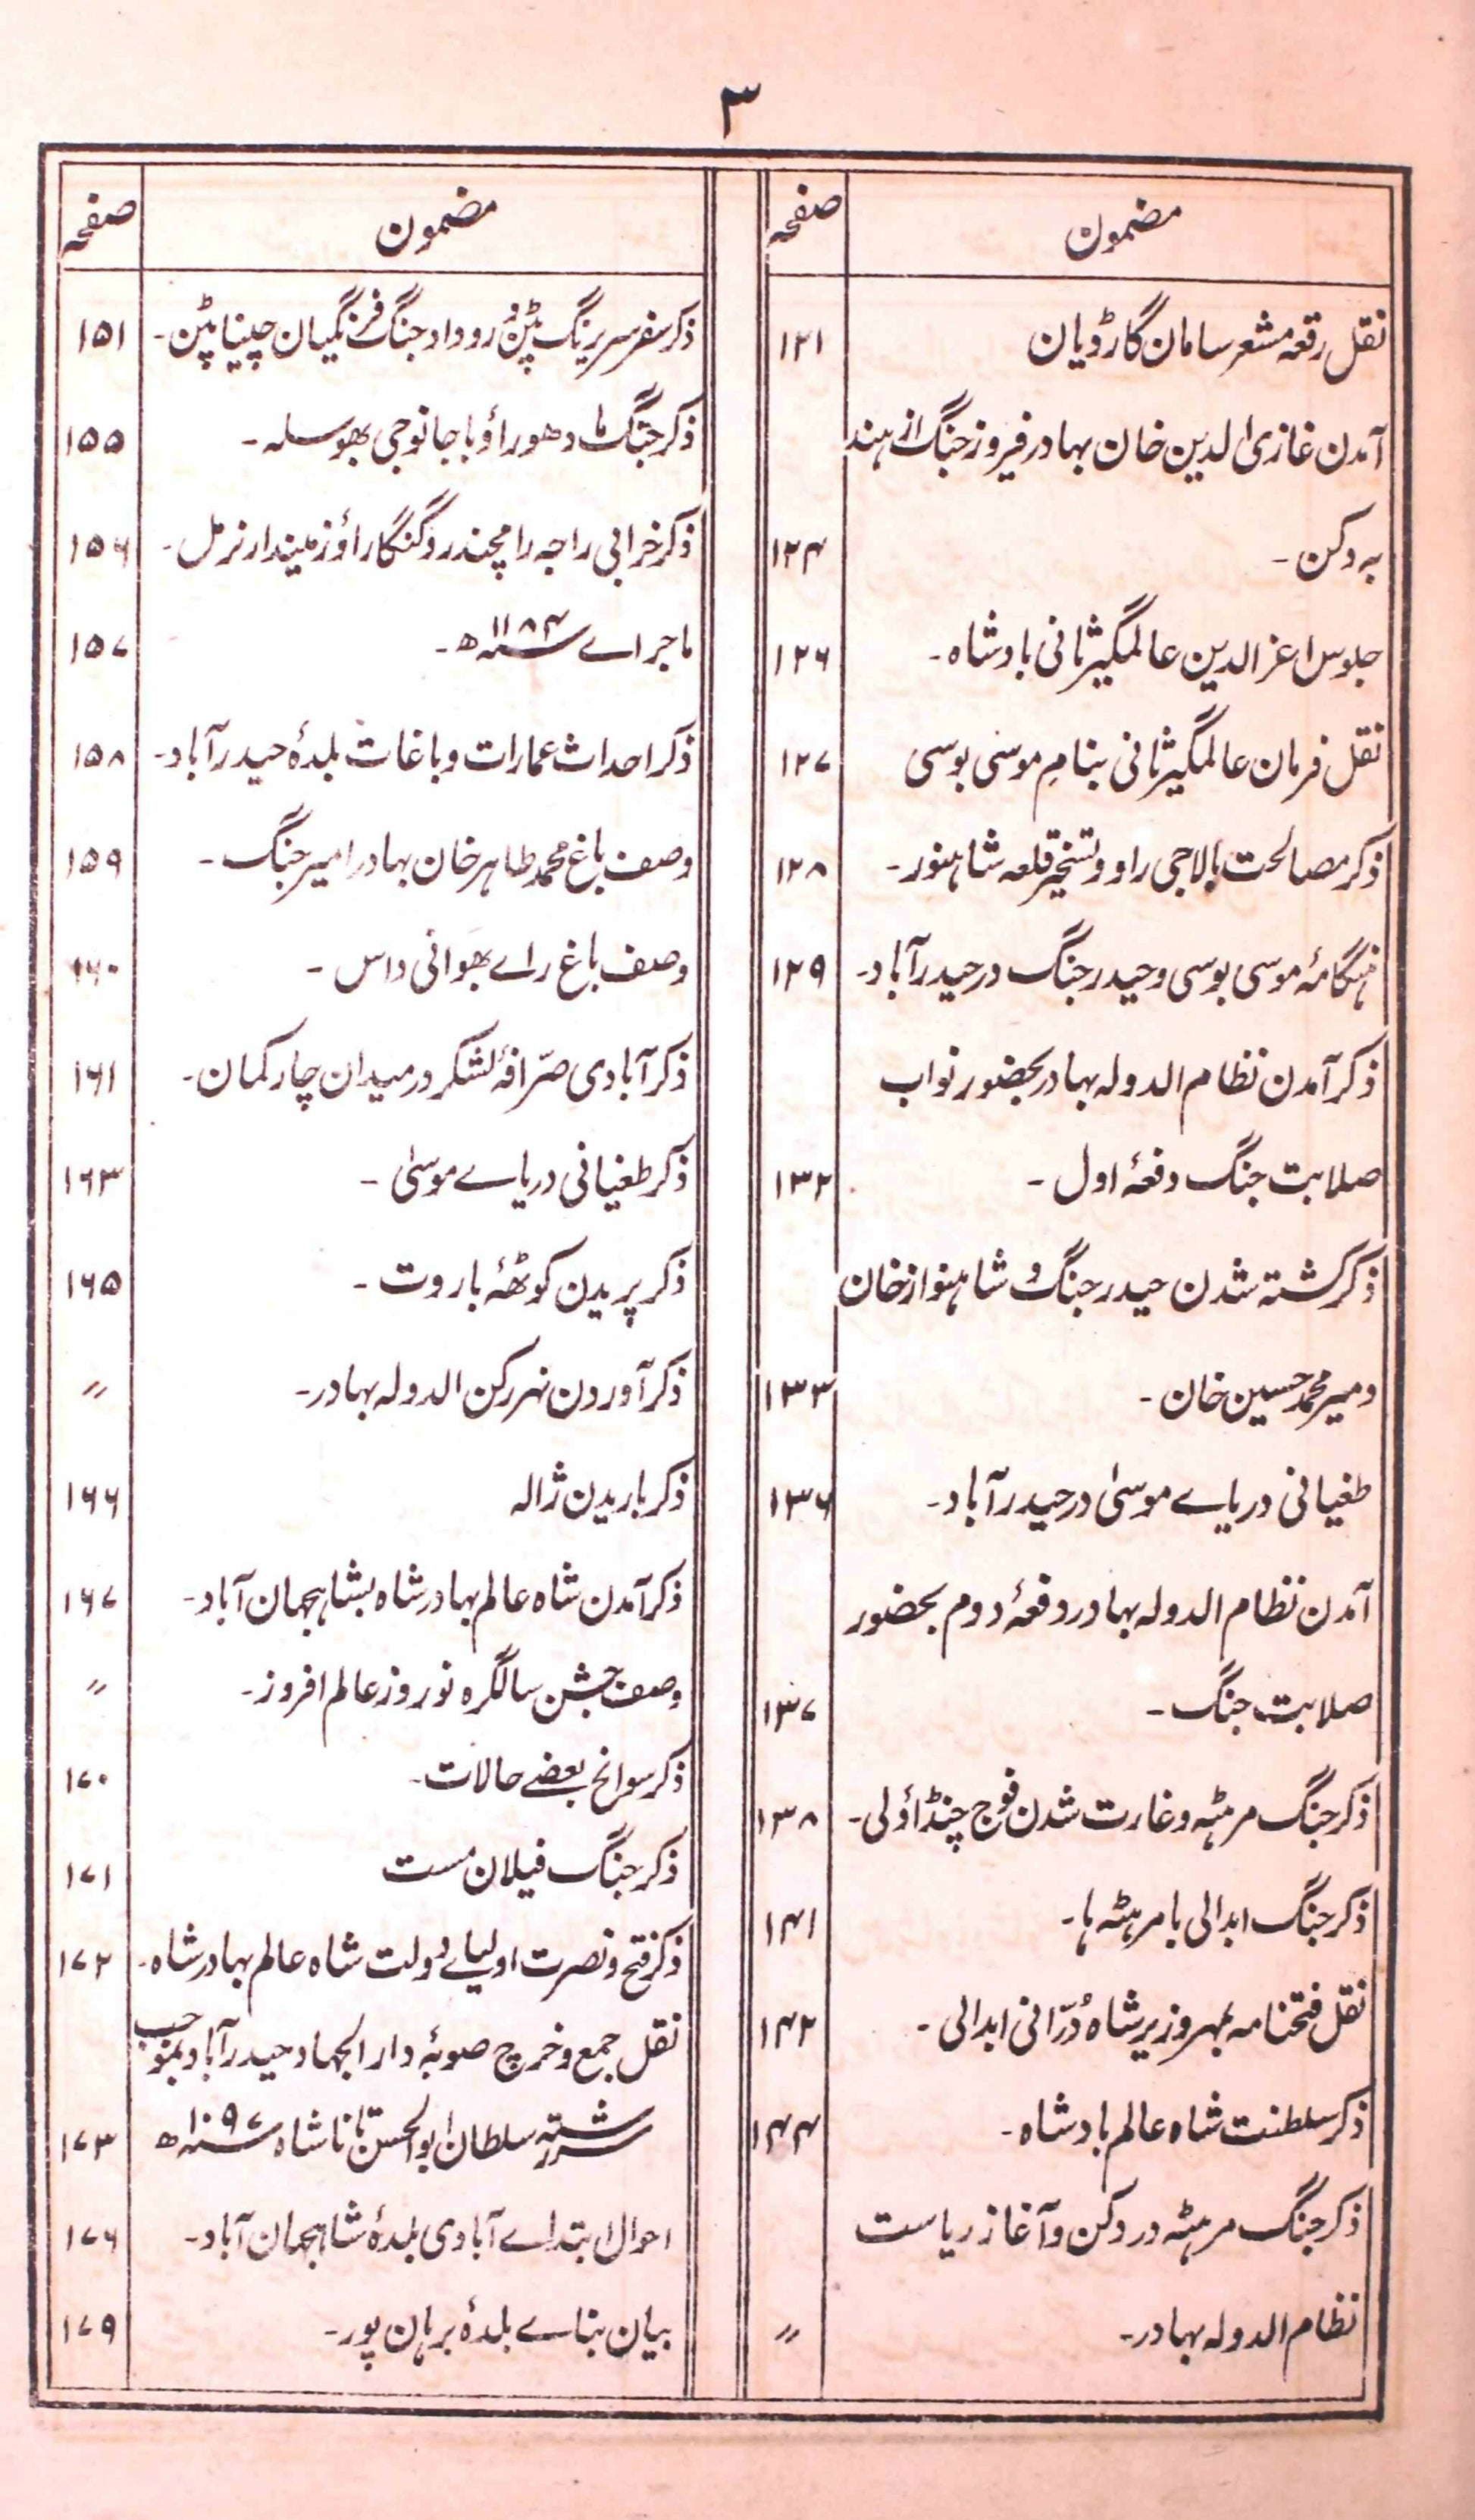 ۳
مضمون صفحہ
نقل رقعہ مشعر سامان گارڈیان ۱۲۱
آمدن غازی الدین خان بہادر فیروز جنگ از ہند
بہ دکن۔ ۱۲۴
جلوس اعز الدین عالمگیر ثانی بادشاہ۔ ۱۲۶
نقل فرمان عالمگیر ثانی بنامِ موسی بوسی ۱۲۷
ذکر مصالحت بالاجی راو و تسخیر قلعہ شاہنور۔ ۱۲۸
ہنگامۂ موسی بوسی و حیدر جنگ در حیدرآباد۔ ۱۲۹
ذکر آمدن نظام الدولہ بہادر بحضور نواب
صلابت جنگ دفعۂ اول۔ ۱۳۲
ذکر کشتہ شدن حیدر جنگ و شاہنواز خان
و میر محمد حسین خان۔ ۱۳۳
طغیانی دریاے موسیٰ در حیدرآباد۔ ۱۳۶
آمدن نظام الدولہ بہادر دفعۂ دوم بحضور
صلابت جنگ۔ ۱۳۷
ذکر جنگ مرہٹہ و غارت شدن فوج چنڈاؤلی۔ ۱۳۸
ذکر جنگ ابدالی با مرہٹہ ہا۔ ۱۴۱
نقل فتحنامہ بمہر وزیر شاہ دُرّانی ابدالی۔ ۱۴۲
ذکر سلطنت شاہ عالم بادشاہ۔ ۱۴۴
ذکر جنگ مرہٹہ در دکن و آغاز ریاست
نظام الدولہ بہادر۔ 〃
مضمون صفحہ
ذکر سفر سریرنگ پٹن و روداد جنگ فرنگیان چیناپٹن۔ ۱۵۱
ذکر جنگ مادھوراؤ با جانوجی بھوسلہ۔ ۱۵۵
ذکر خرابی راجہ رامچندر و گنگاراؤ زمیندار نرمل۔ ۱۵۶
ماجراے ۱۱۸۴ سنہ ھ۔ ۱۵۷
ذکر احداث عمارات و باغات بلدۂ حیدرآباد۔ ۱۵۸
وصف باغ محمد طاہر خان بہادر امیر جنگ۔ ۱۵۹
وصف باغ راے بھوانی داس۔ ۱۶۰
ذکر آبادی صرّافۂ لشکر در میدان چارکمان۔ ۱۶۱
ذکر طغیانی دریاے موسیٰ۔ ۱۶۳
ذکر پریدن کوٹھۂ باروت۔ ۱۶۵
ذکر آوردن نہر رکن الدولہ بہادر۔ 〃
ذکر باریدن ژالہ ۱۶۶
ذکر آمدن شاہ عالم بہادر شاہ بشاہجہان آباد۔ ۱۶۷
وصف جشن سالگرہ نوروز عالم افروز۔ 〃
ذکر سوانح بعضے حالات۔ ۱۷۰
ذکر جنگ فیلان مست ۱۷۱
ذکر فتح و نصرت اولیاے دولت شاہ عالم بہادر شاہ۔ ۱۷۲
نقل جمع و خرچ صوبۂ دار الجہاد حیدرآباد بموجب
سررشتہ سلطان ابوالحسن تاناشاہ ۱۰۹۷ سنہ ھ ۱۷۳
احوال ابتداے آبادی بلدۂ شاہجہان آباد۔ ۱۷۶
بیان بناے بلدۂ برہان پور۔ ۱۷۹